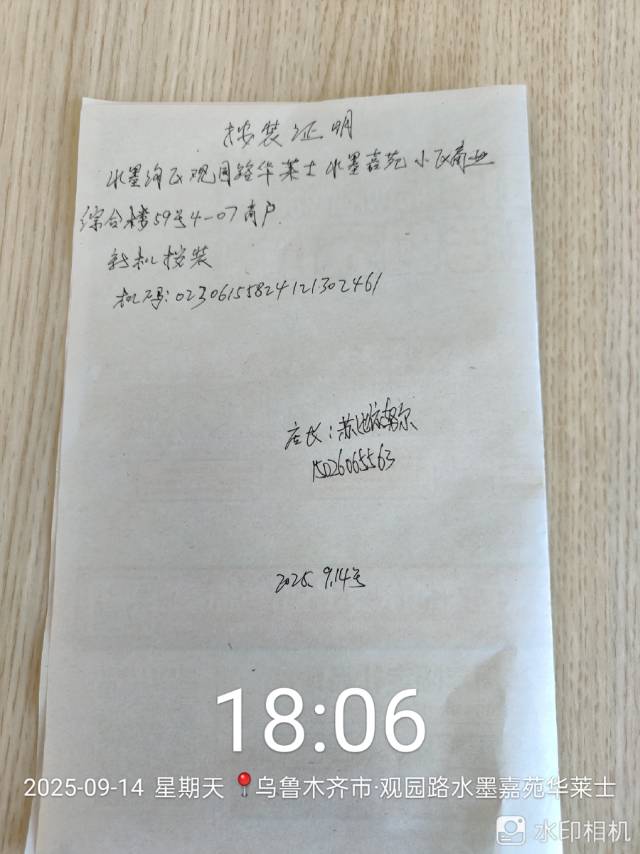 按装证明
水墨沟区观园路华莱士水墨嘉苑小区商业
综合楼59号4-07商户
新机按装
机码:02306155824121302461
店长:苏
15026065563
2025.9.14号
18:06
2025-09-14 星期天 乌鲁木齐市·观园路水墨嘉苑华莱士
水印相机